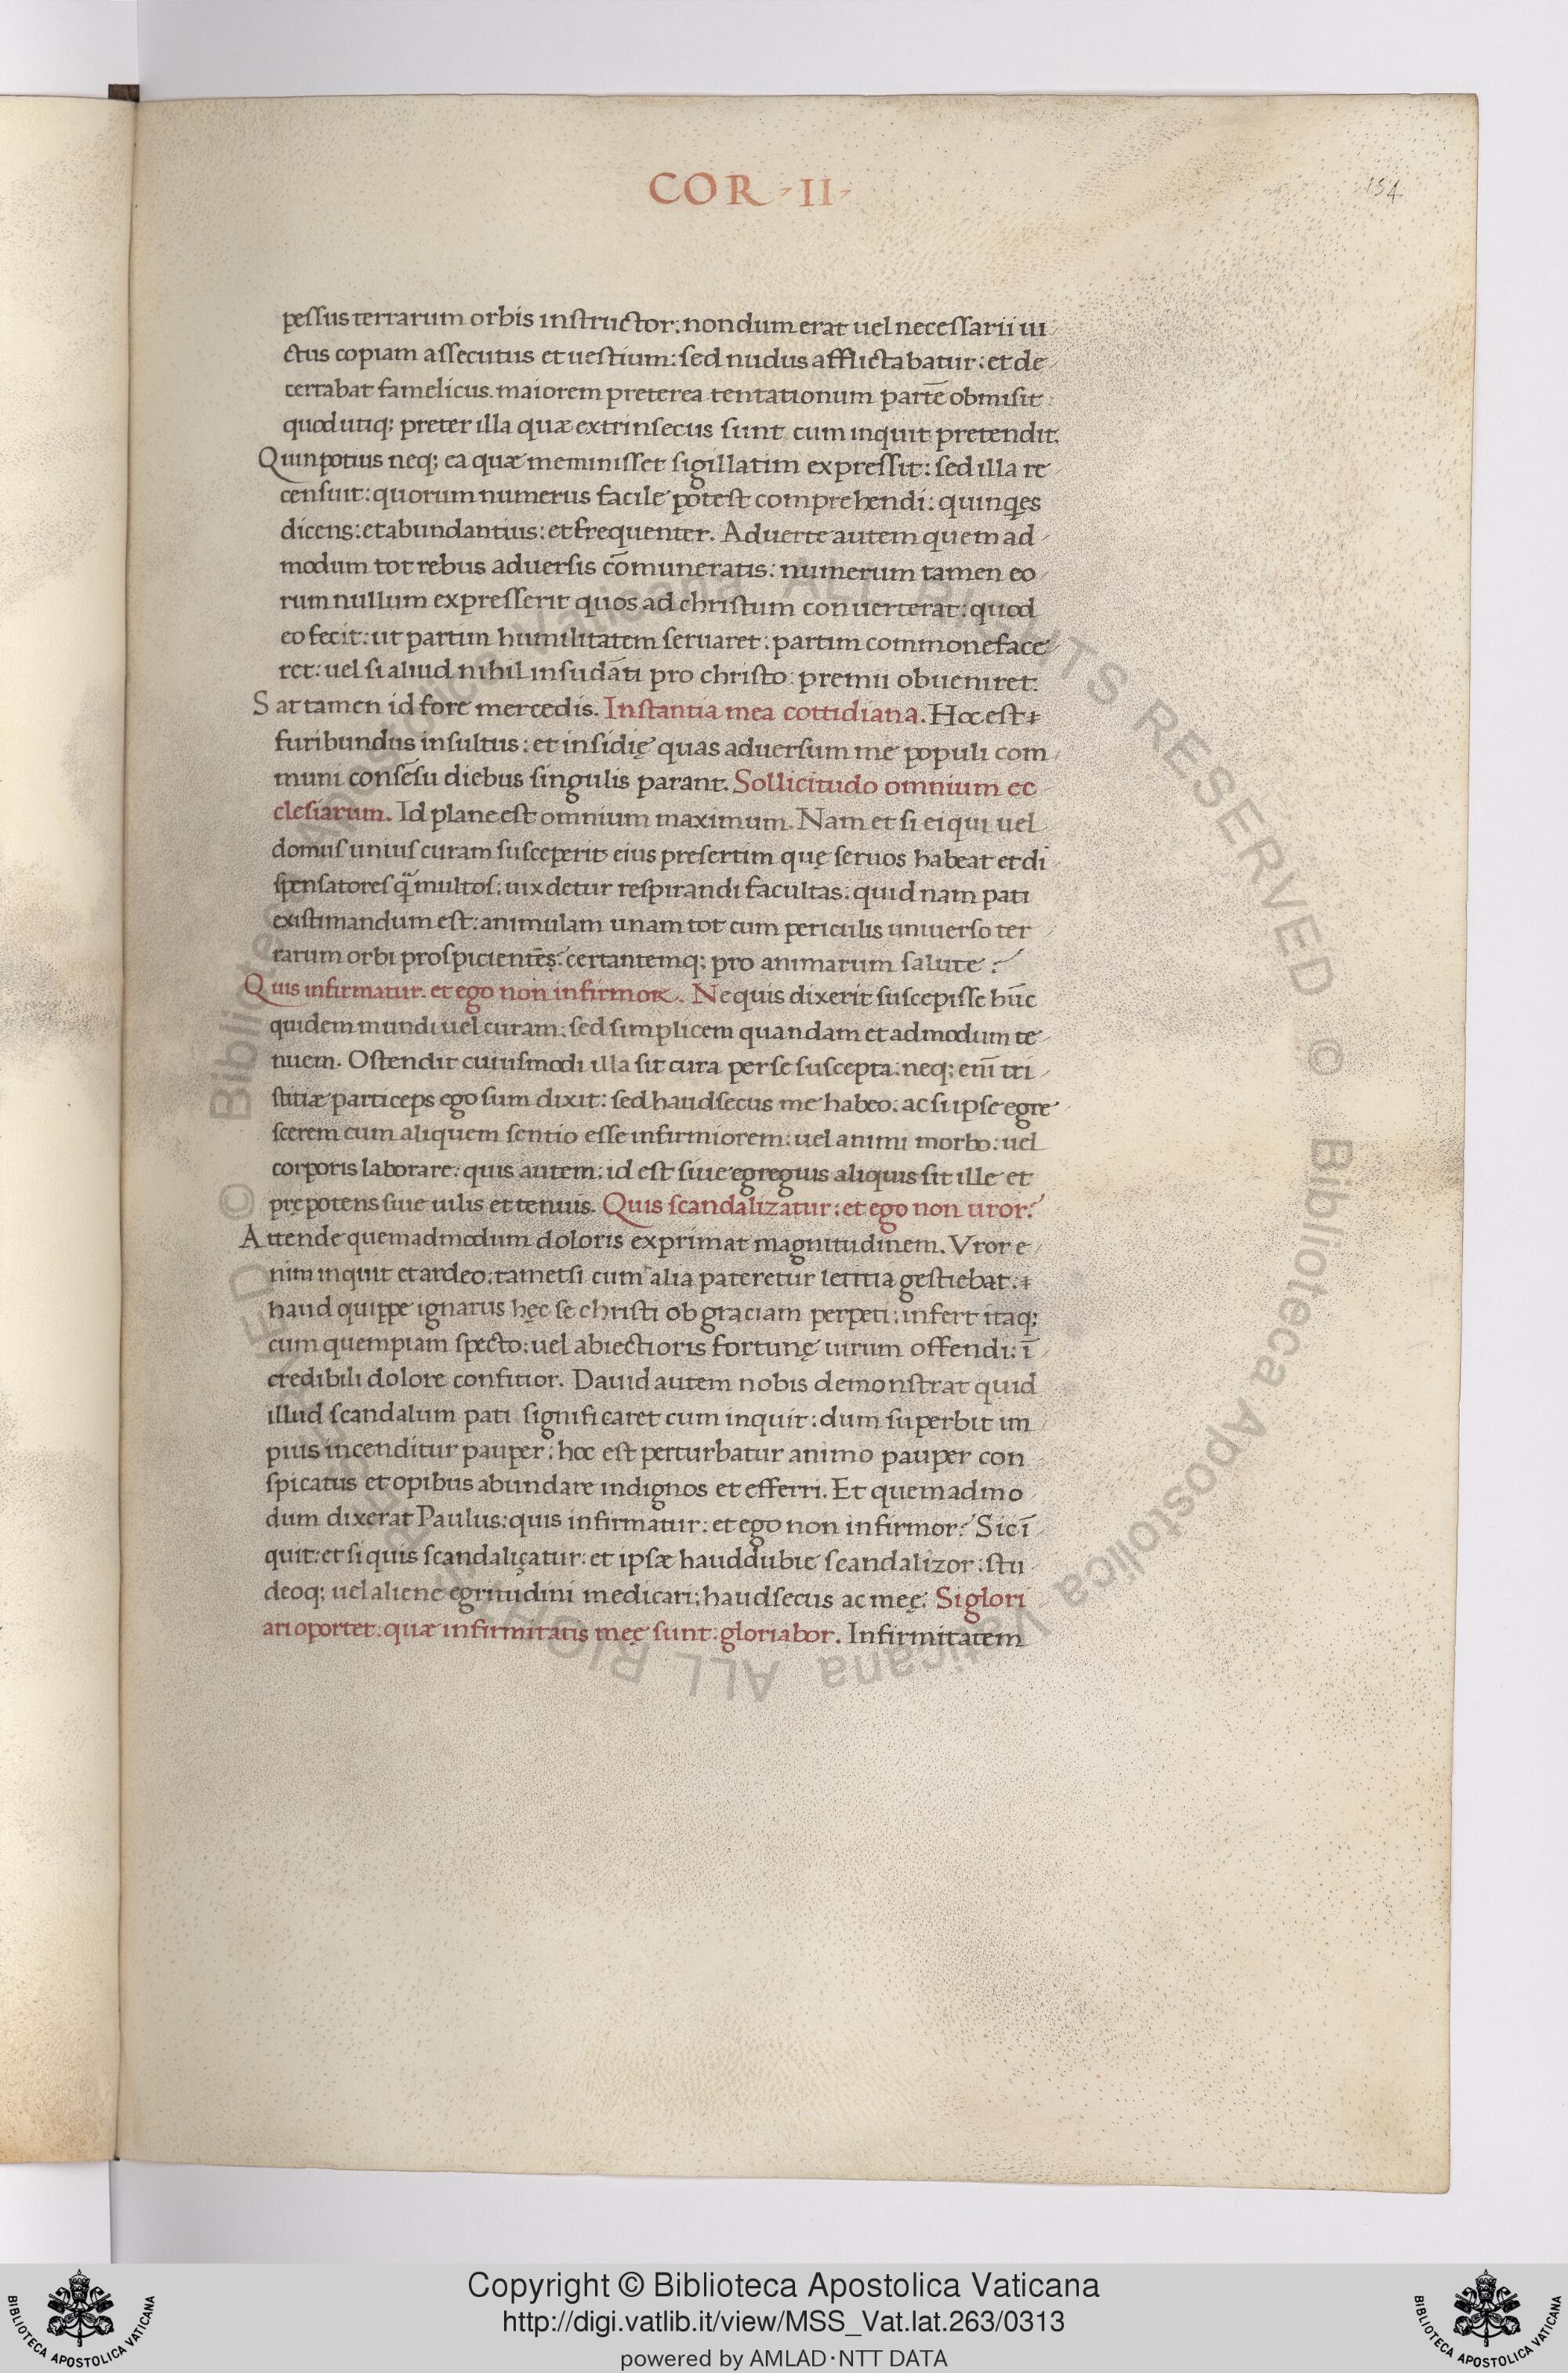 COR · II ·
154
pessus terrarum orbis instructor: nondum erat uel necessarii ui
ctus copiam assecutus et uestium: sed nudus afflictabatur: et de
certabat famelicus. maiorem preterea tentationum partē obmisit:
quod utiq; preter illa quæ extrinsecus sunt cum inquit pretendit.
Quin potius neq; ea quæ meminisset sigillatim expressit: sed illa re
censuit: quorum numerus facile potest comprehendi: quinq̨es
dicens: et abundantius: et frequenter. Aduerte autem quem ad
modum tot rebus aduersis cōmuneratis: numerum tamen eo
rum nullum expresserit quos ad christum conuerterat: quod
eo fecit: ut partim humilitatem seruaret: partim commoneface
ret: uel si aliud nihil insudāti pro christo: premii obueniret:
Sat tamen id fore mercedis. Instantia mea cottidiana. Hoc est
furibundus insultus: et insidię quas aduersum me populi com
muni consēsu diebus singulis parant. Sollicitudo omnium ec
clesiarum. Id plane est omnium maximum. Nam et si ei qui uel
domus unius curam susceperit eius presertim quę seruos habeat et di
spensatores q̄ multos: uix detur respirandi facultas: quid nam pati
existimandum est: animulam unam tot cum periculis uniuerso ter
rarum orbi prospicientēs: certantemq; pro animarum salute?
Quis infirmatur. et ego non infirmor. Ne quis dixerit suscepisse hūc
quidem mundi uel curam: sed simplicem quandam et admodum te
nuem. Ostendit cuiusmodi illa sit cura per se suscepta: neq; enī tri
stitiæ particeps ego sum dixit: sed haud secus me habeo: ac si ipse egre
scerem cum aliquem sentio esse infirmiorem: uel animi morbo: uel
corporis laborare: quis autem: id est siue egregius aliquis sit ille et
prępotens siue uilis et tenuis. Quis scandalizatur: et ego non uror?
Attende quemadmodum doloris exprimat magnitudinem. Vror e
nim inquit et ardeo: tametsi cum alia pateretur letitia gestiebat:
haud quippe ignarus hęc se christi ob graciam perpeti: infert itaq;
cum quempiam specto: uel abiectioris fortunę uirum offendi: ī
credibili dolore confitior. Dauid autem nobis demonstrat quid
illud scandalum pati significaret cum inquit: dum superbit im
pius incenditur pauper: hoc est perturbatur animo pauper con
spicatus et opibus abundare indignos et efferri. Et quemadmo
dum dixerat Paulus: quis infirmatur: et ego non infirmor? Sic ī
quit: et si quis scandaliçatur: et ipsæ haud dubie scandalizor: stu
deoq; uel aliene egritudini medicari: haud secus ac meę. Si glori
ari oportet: quæ infirmitatis meę sunt: gloriabor. Infirmitatem
© Biblioteca Apostolica Vaticana ALL RIGHTS RESERVED © Biblioteca Apostolica Vaticana ALL RIGHTS RESERVED
Copyright © Biblioteca Apostolica Vaticana
http://digi.vatlib.it/view/MSS_Vat.lat.263/0313
powered by AMLAD·NTT DATA
BIBLIOTECA APOSTOLICA VATICANA
BIBLIOTECA APOSTOLICA VATICANA